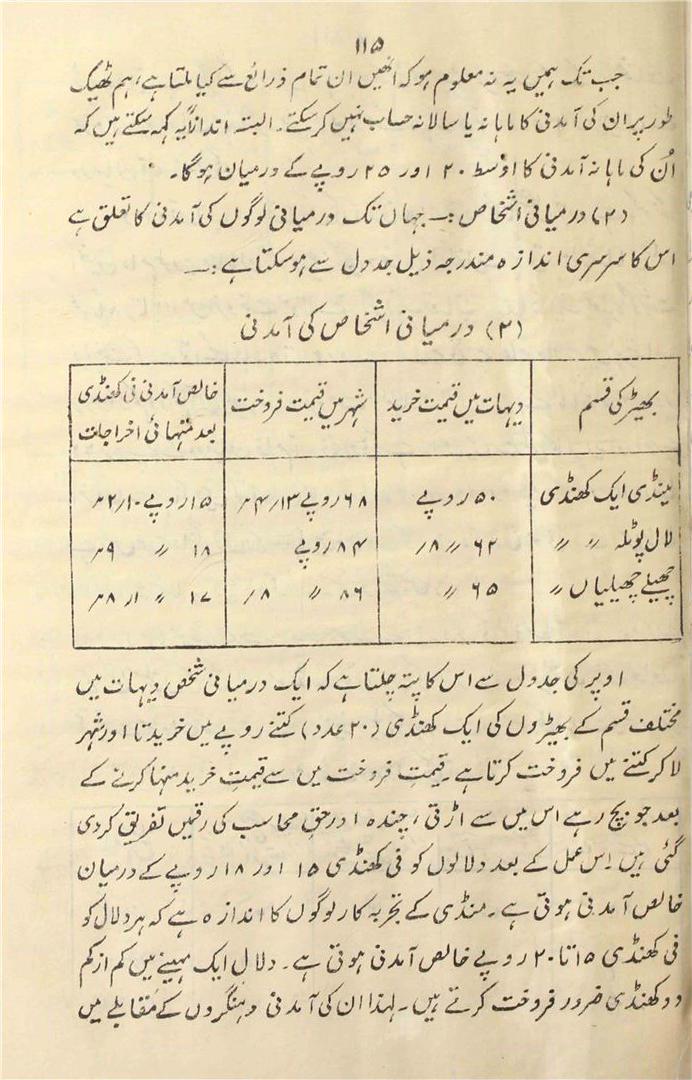 ۱۱۵
جب تک ہمیں یہ نہ معلوم ہو کہ انھیں ان تمام ذرائع سے کیا ملتا ہے، ہم ٹھیک
طور پر ان کی آمدنی کا ماہانہ یا سالانہ حساب نہیں کر سکتے۔ البتہ اندازاً یہ کہہ سکتے ہیں کہ
اُن کی ماہانہ آمدنی کا اوسط ۲۰ اور ۲۵ روپے کے درمیان ہوگا۔
(۲) درمیانی اشخاص :۔ جہاں تک درمیانی لوگوں کی آمدنی کا تعلق ہے
اس کا سرسری اندازہ مندرجہ ذیل جدول سے ہو سکتا ہے :۔
(۳) درمیانی اشخاص کی آمدنی
بھیڑ کی قسم | دیہات میں قیمت خرید | شہر میں قیمت فروخت | خالص آمدنی فی کھنڈی بعد منہائی اخراجات
مینڈی ایک کھنڈی | ۵۰ روپے | ۶۸ روپے ۴/۱۳ر | ۱۵ روپے ۲/۱۰ر
لال پوٹلہ 〃 〃 | ۶۲ 〃 ۸ر | ۸۴ روپے | ۱۸ 〃 ۹ر
چھیلے چھیلیاں 〃 | ۶۵ 〃 | ۸۶ 〃 ۸ر | ۱۷ 〃 ۸/۱ر
اوپر کی جدول سے اس کا پتہ چلتا ہے کہ ایک درمیانی شخص دیہات میں
مختلف قسم کے بھیڑوں کی ایک کھنڈی (۲۰ عدد) کتنے روپے میں خریدتا اور شہر
لا کر کتنے میں فروخت کرتا ہے۔ قیمتِ فروخت میں سے قیمتِ خرید منہا کرنے کے
بعد جو بچ رہے اس میں سے اڑتی، چندہ اور حقِ محاسب کی رقمیں تفریق کر دی
گئی ہیں۔ اس عمل کے بعد دلالوں کو فی کھنڈی ۱۵ اور ۱۸ روپے کے درمیان
خالص آمدنی ہوتی ہے۔ منڈی کے تجربہ کار لوگوں کا اندازہ ہے کہ ہر دلال کو
فی کھنڈی ۱۵ تا ۲۰ روپے خالص آمدنی ہوتی ہے۔ دلال ایک مہینے میں کم از کم
دو کھنڈی ضرور فروخت کرتے ہیں۔ لہٰذا ان کی آمدنی دہنگروں کے مقابلے میں